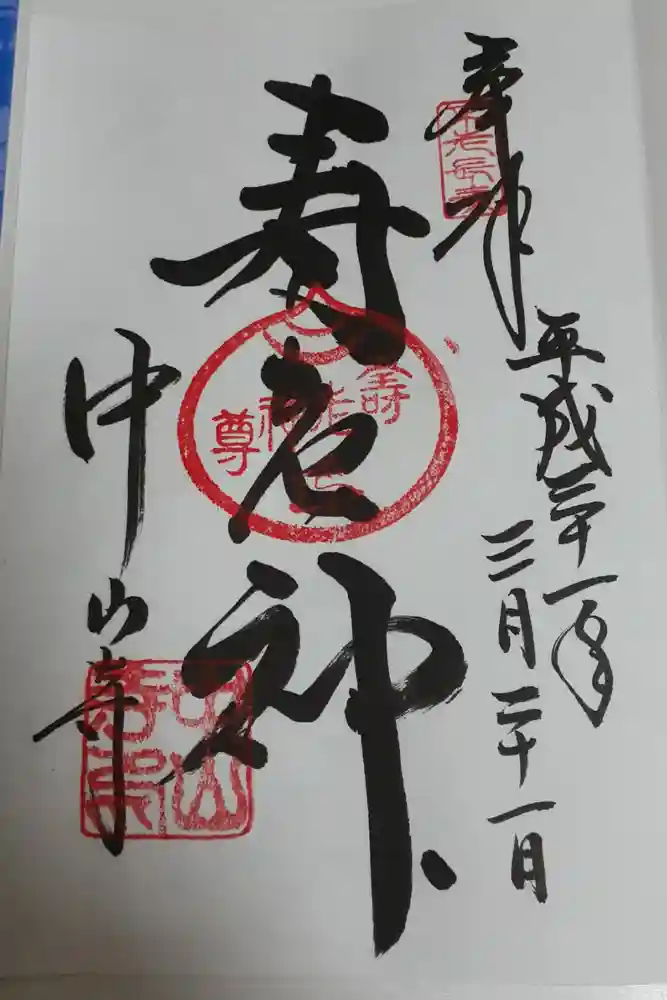 奉拝
平成三十一年
三月二十一日
寿老神
中山寺